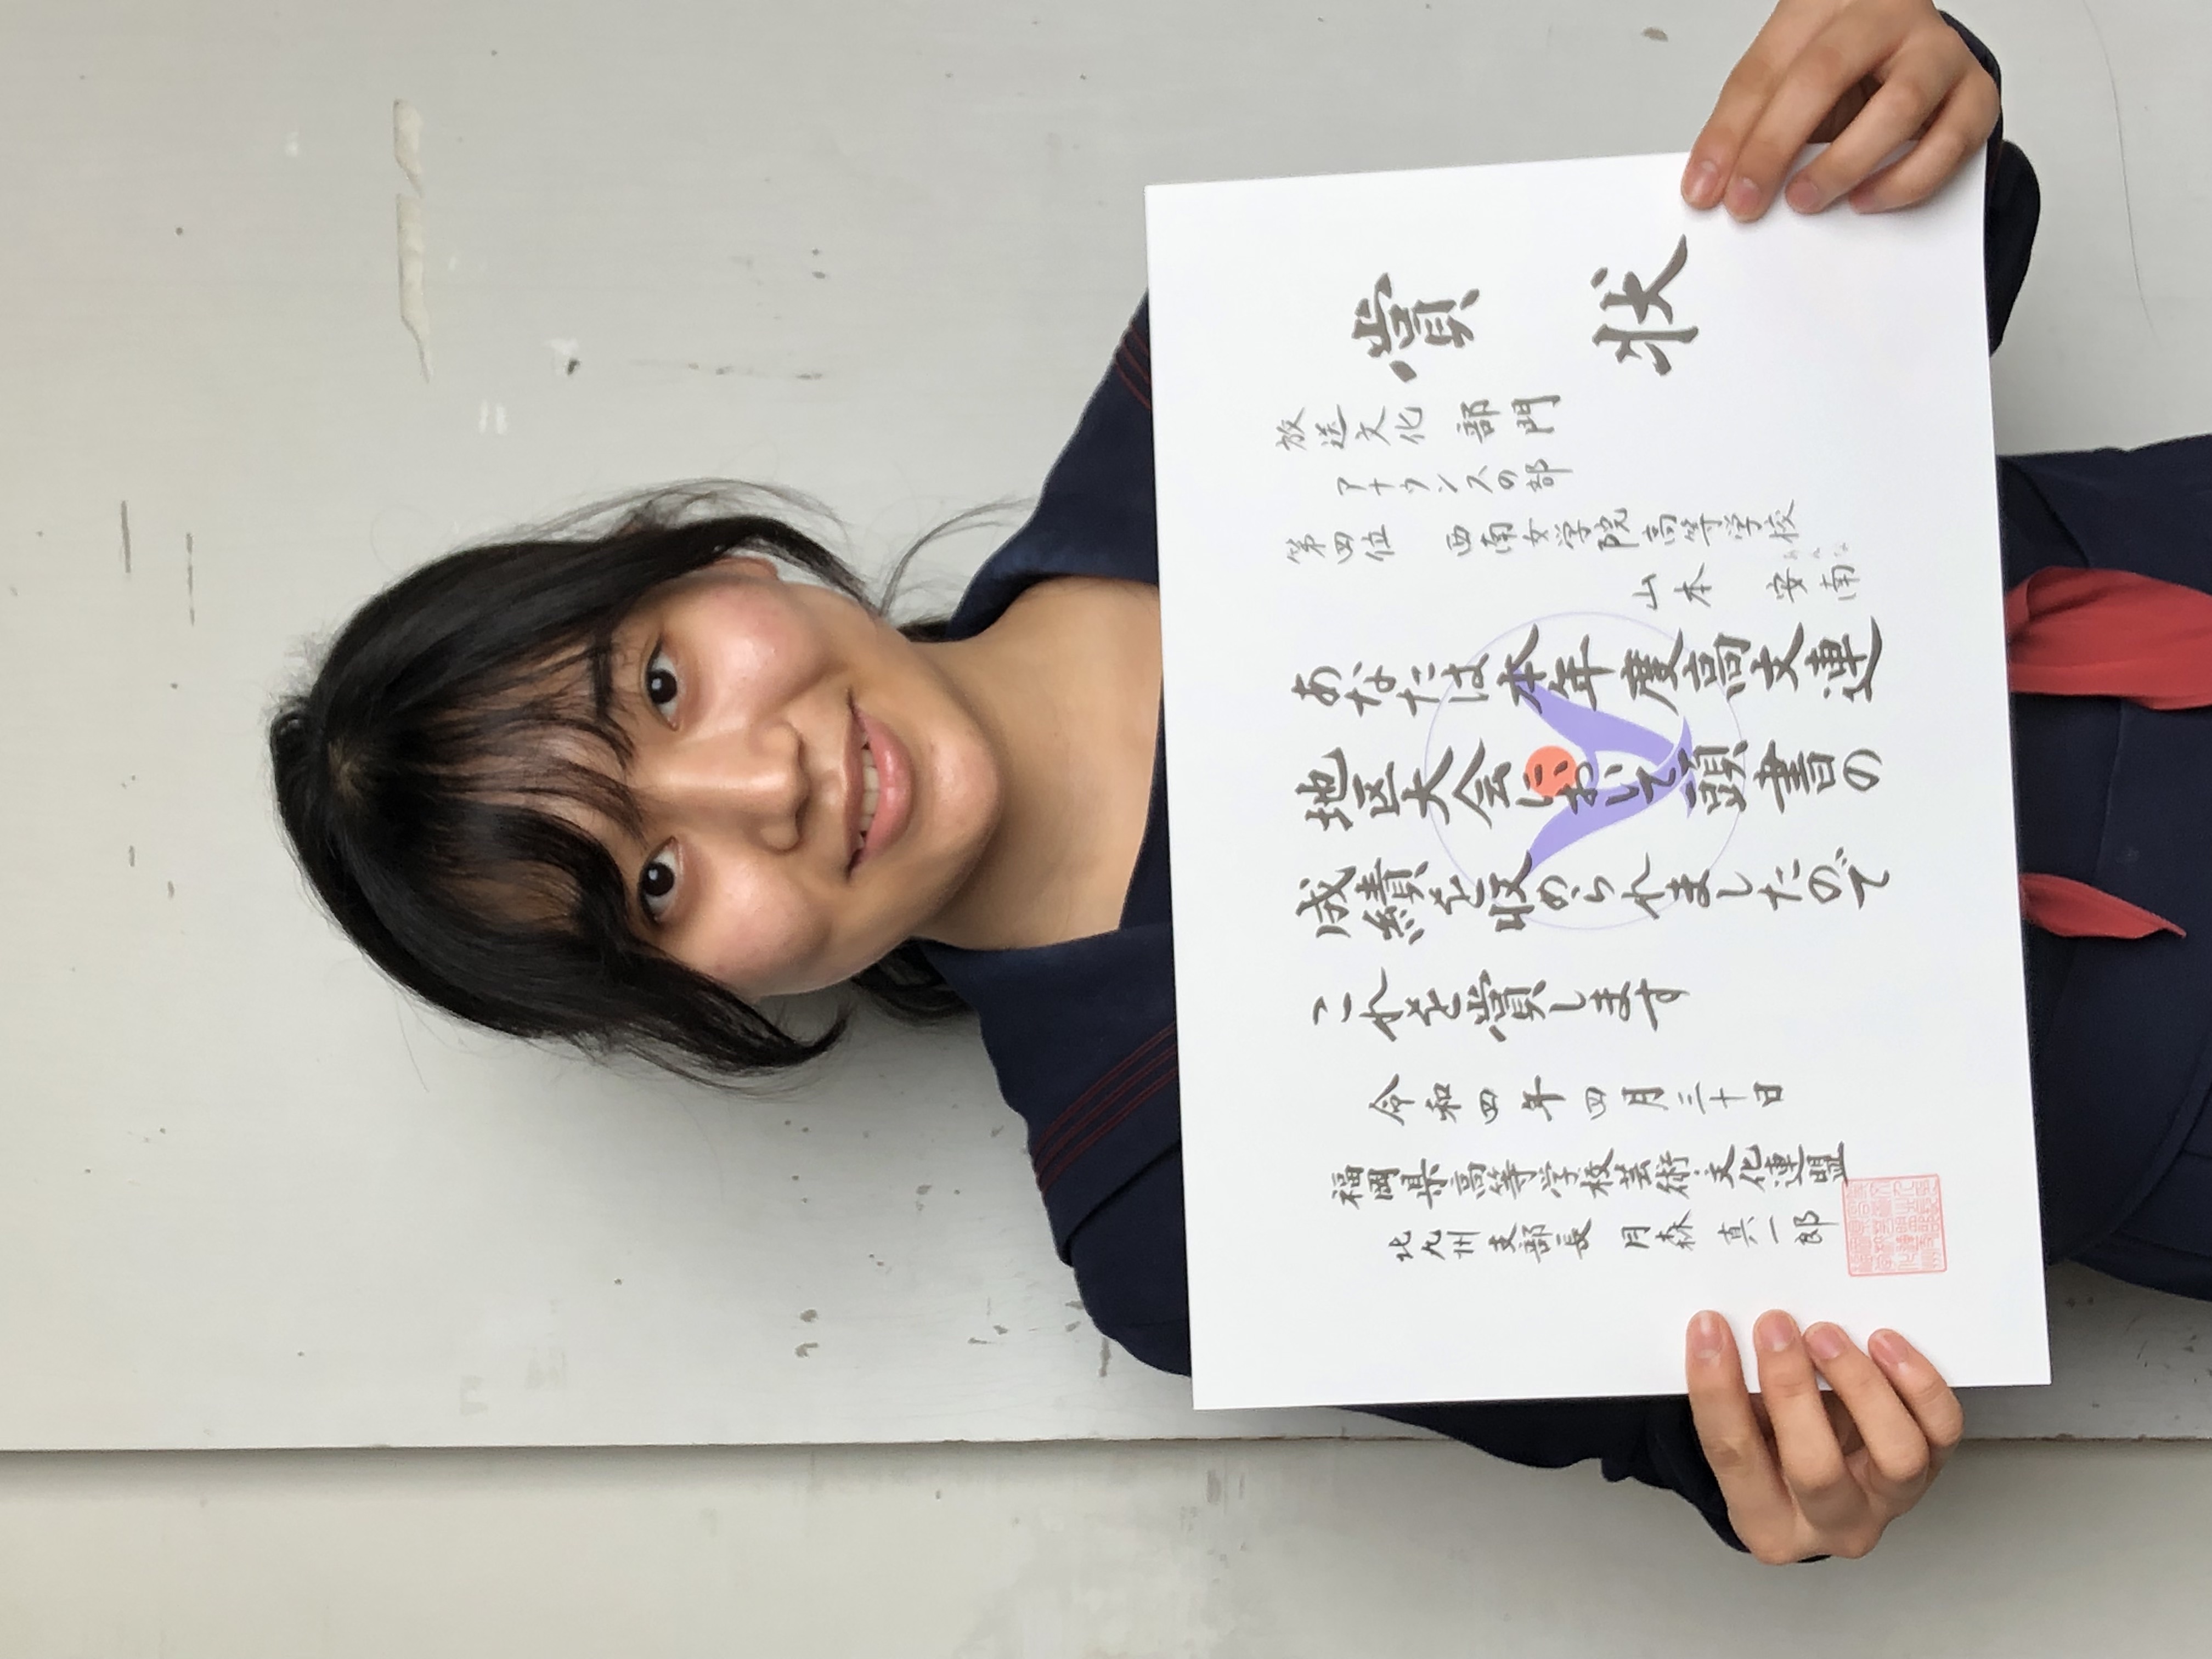 賞状
放送文化部門
アナウンスの部
第四位 西南女学院高等学校
あんな
山本 安南
あなたは本年度高文連
地区大会において頭書の
成績を収められましたので
これを賞します
令和四年四月三十日
福岡県高等学校芸術・文化連盟
北九州支部長 月森 真一郎